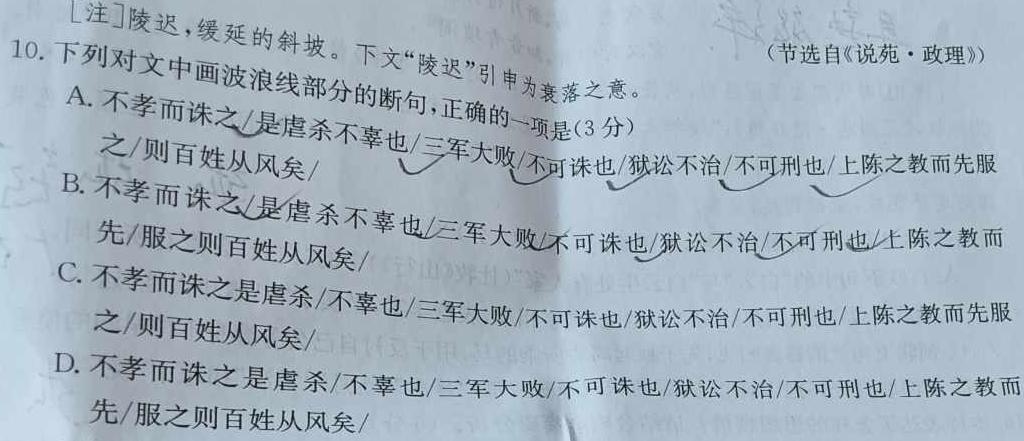 [注]陵迟,缓延的斜坡。下文“陵迟”引申为衰落之意。
(节选自《说苑·政理》)
10. 下列对文中画波浪线部分的断句,正确的一项是(3分)
A. 不孝而诛之/是虐杀不辜也/三军大败/不可诛也/狱讼不治/不可刑也/上陈之教而先服
之/则百姓从风矣/
B. 不孝而诛之/是虐杀不辜也/三军大败/不可诛也/狱讼不治/不可刑也/上陈之教而
先/服之则百姓从风矣/
C. 不孝而诛之是虐杀/不辜也/三军大败/不可诛也/狱讼不治/不可刑也/上陈之教而先服
之/则百姓从风矣/
D. 不孝而诛之是虐杀/不辜也/三军大败/不可诛也/狱讼不治/不可刑也/上陈之教而
先/服之则百姓从风矣/